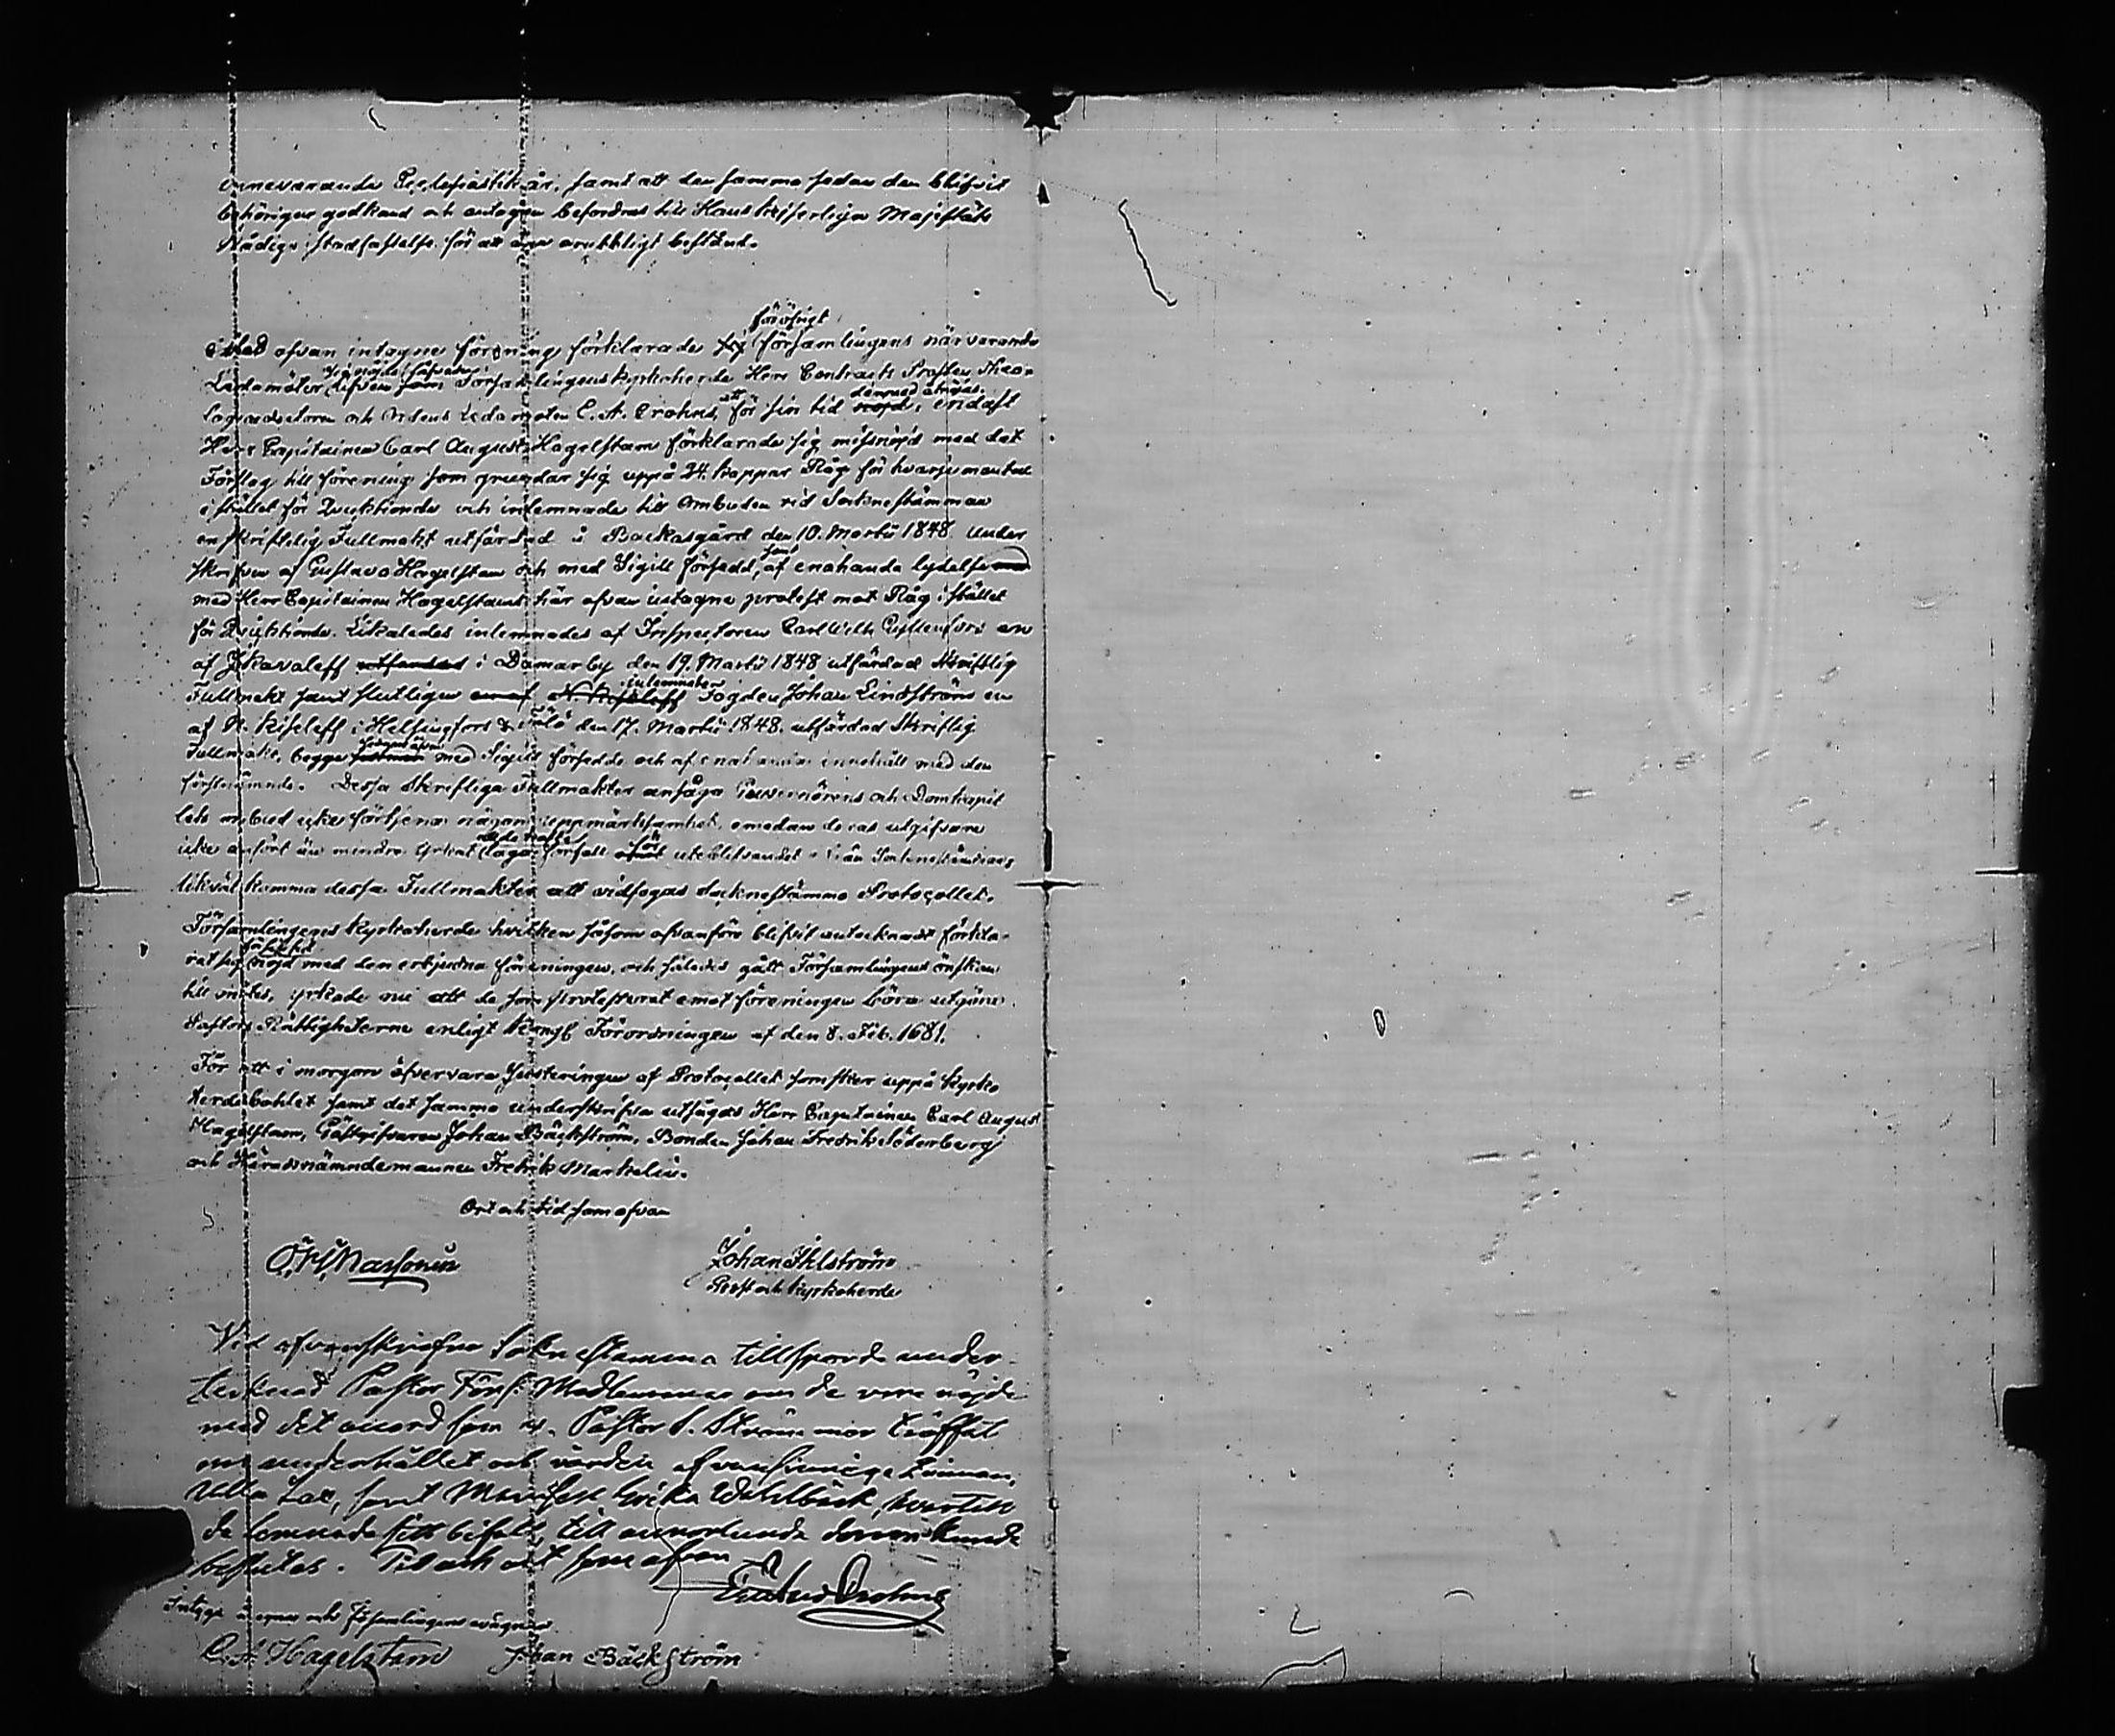 innevarande Ecclesiastik år, samt att den samma sedan den blifvit
behörigen godkänd och antagen befordras till Hans Kejserliga Majestäts
Nådiga stadfästelse för att äga orubbligt bestånd.
föröfrigt
Med ofvan intagne förening förklarade sig församlingens närvarande
Ledamöter äfven som Församlingens kyrkoherde Herr Contracts Prosten Theo-
logiædoctorn och Ordens Ledamoten C. A. Crohns, för sin tid nöjd, endast
Herr Capitainen Carl August Hagelstam förklarade sig missnöjd med det
Förslag till förening som grundar sig uppå 24. kappar Råg för hvarje mantal
i stället för Qviktionde och inlemnade till Ombuden vid Sockne stämman
en skriftelig Fullmakt utfärdad å Backasgård den 10. Martii 1848 under
skrifven af Gustava Hagelstam och med Sigill försedd, samt af enahanda lydelse med
med Herr Capitainen Hagelstams här ofvan intagne protest mot Råg i stället
för Qviktionde. Likaledes inlemnades af Inspectoren Carl Wilh. en
af J. Kavaleff utfärdad i Damarby den 19. Martii 1848 utfärdad Skriftlig
inlemnade
Fullmakt samt slutligen N. Kiseleff Fogden Johan Lindström en
af N. Kiseleff i Helsingfors & Tölö den 17. Martii 1848. utfärdad Skriftlig
Fullmakt, begge med Sigill försedde och af enahanda innehåll med den
förstnämnde. Dessa skriftliga Fullmakter ansågo Gouvernörens och Domkapit
lets ombud icke förtjena någon uppmärksamhet, emedan deras utgifvare
icke anfört än mindre styrkt laga förfall för uteblifvandet från Sockenstämman,
likväl komma dessa Fullmakter att vidfogas Sockne stämmo Protocollet.
Församlingens Kyrkoherde hvilken såsom ofvanföre blifvit antecknadt förkla-
för sin tid
rat sig nöjd med den erbjudna föreningen, och således gått Församlingens önskan
till mötes, yrkade nu att de som protesterat emot föreningen böra utgöra
Pastors Rättigheterne enligt Kongl Förordningen af den 8. Feb. 1681.
För att i morgon öfvervara Justeringen af Protocollet som sker uppå Kyrko
herdebohlet samt det samma underskrifva utsågos Herr Capitainen Carl August
Hagelstam, Gästgifvaren Johan Bäckström, Bonden Johan Fredrik Söderberg
och Häradsnämndemannen Fredrik Markelin.
Ort och tid som ofvan
Johan Ihlström
Prost och Kyrkoherde
Vid ofvanskrifne Sockne Stämma tillsporde under-
tecknad Pastor Förs: Medlemmar om de vore nöjde
med det accord som v. Pastor träffat
om underhållet och vården af vansinniga
samt Erika Wahlbäck, hvartill
de lemnade sitt bifall, till annorlunda derom kunde
beslutas. Tid och ort som ofvan
Gustav Crohns
Intyga å egna och Församlingens wägnar
C. A. Hagelstam Johan Bäckström